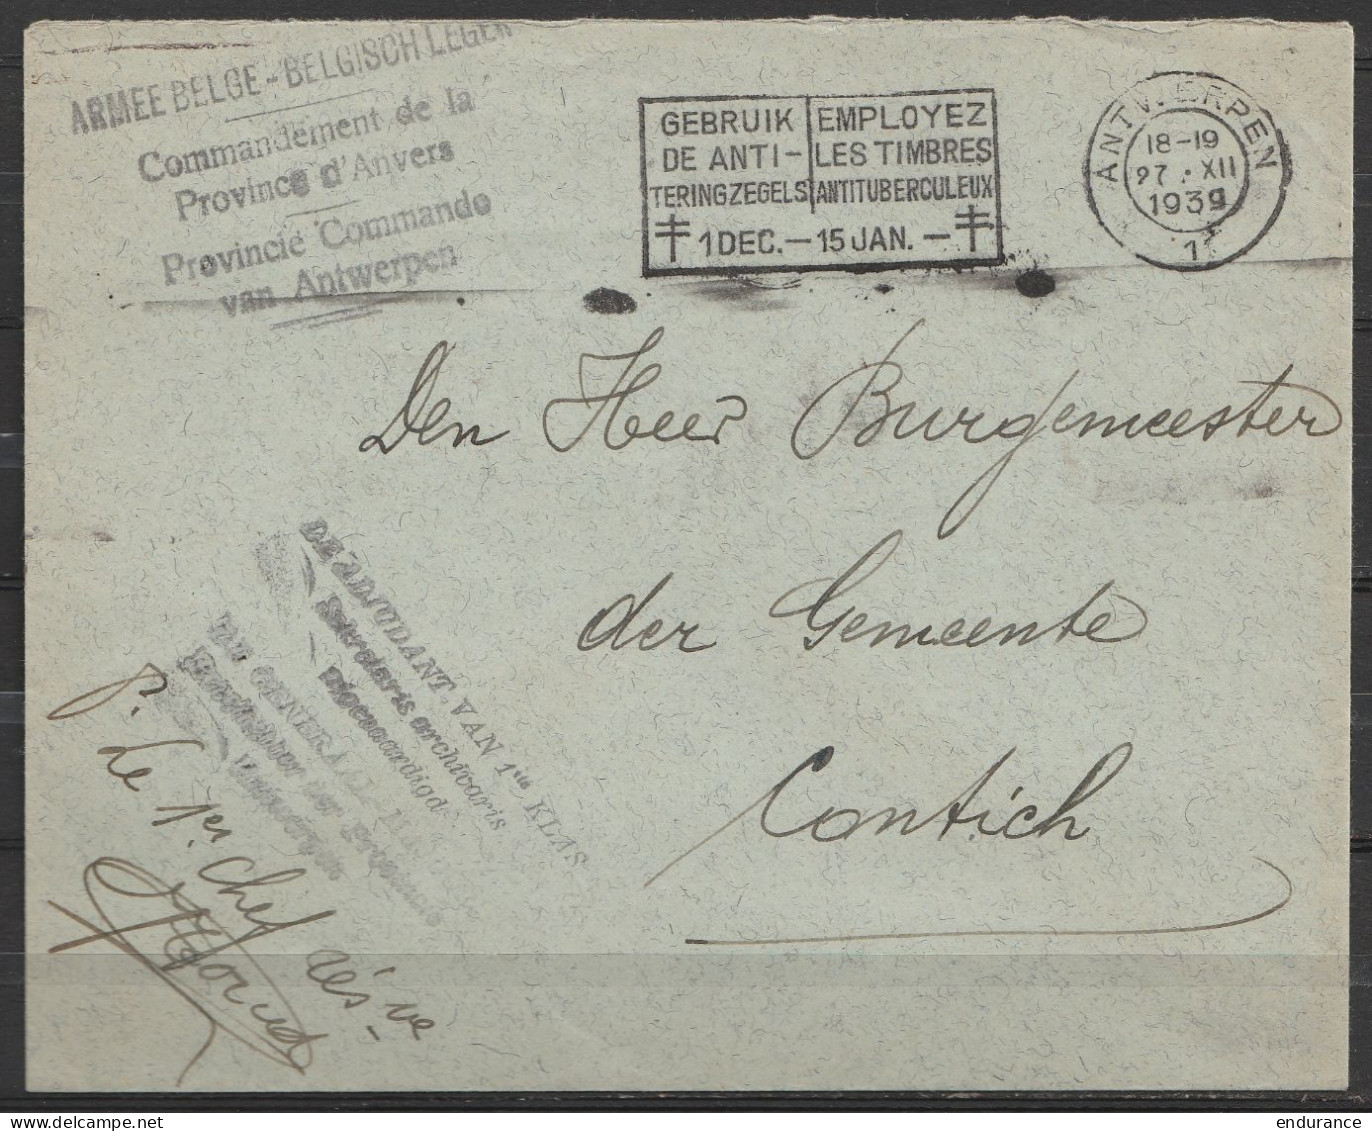 ARMEE BELGE - BELGISCH LEGER
Commandement de la
Province d'Anvers
Provincie Commando
van Antwerpen
GEBRUIK
DE ANTI-
TERINGZEGELS
EMPLOYEZ
LES TIMBRES
ANTITUBERCULEUX
1 DEC. - 15 JAN. -
ANTWERPEN
18-19
27 · XII
1939
Den Heer Burgemeester
der Gemeente
Contich
DE ADJUDANT VAN 1ste KLAS
Sekretaris archivaris
VAN GENERAAL
P. Le 1er Chef
endurance